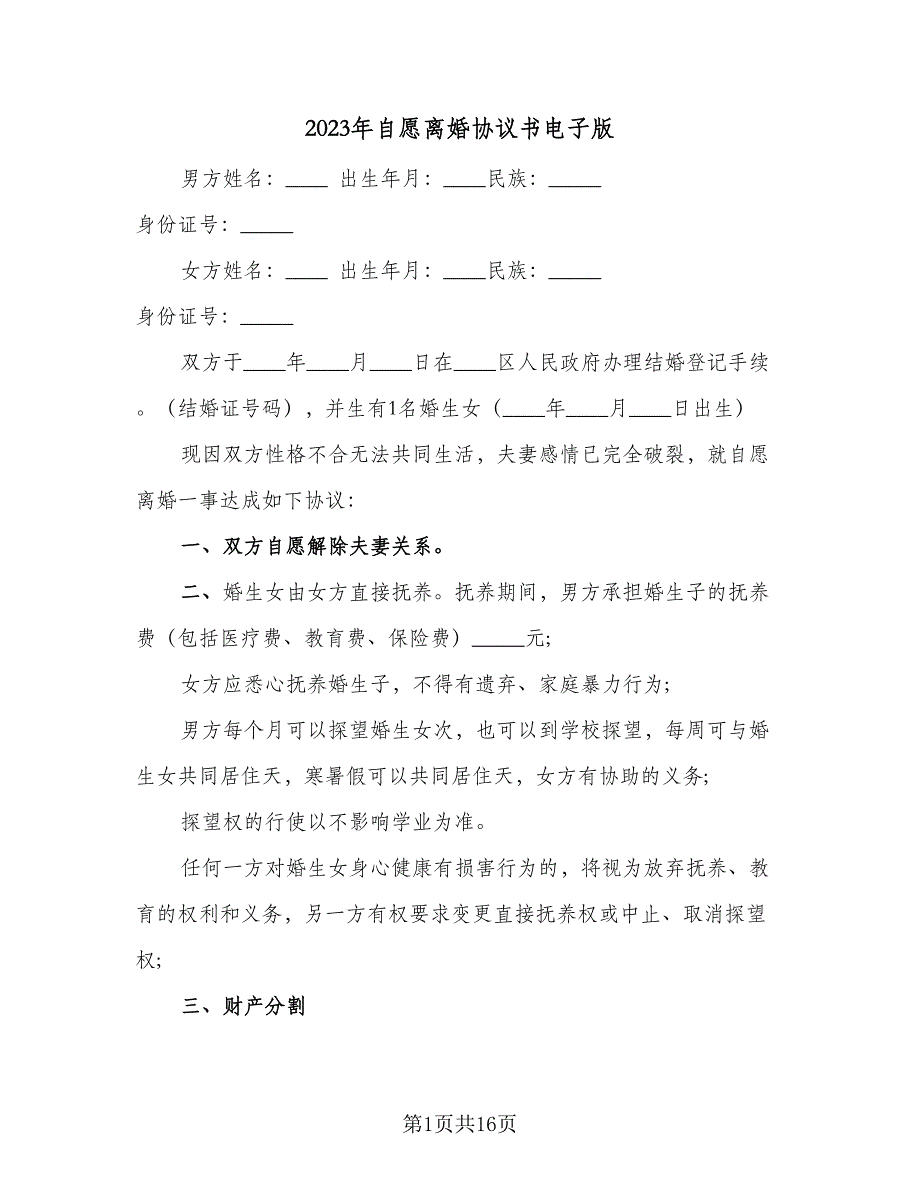 2023年自愿离婚协议书电子版
男方姓名：____ 出生年月：____民族：_____
身份证号：_____
女方姓名：____ 出生年月：____民族：_____
身份证号：_____
双方于____年____月____日在____区人民政府办理结婚登记手续
。（结婚证号码），并生有1名婚生女（____年____月____日出生）
现因双方性格不合无法共同生活，夫妻感情已完全破裂，就自愿
离婚一事达成如下协议：
一、双方自愿解除夫妻关系。
二、婚生女由女方直接抚养。抚养期间，男方承担婚生子的抚养
费（包括医疗费、教育费、保险费）_____元;
女方应悉心抚养婚生子，不得有遗弃、家庭暴力行为;
男方每个月可以探望婚生女次，也可以到学校探望，每周可与婚
生女共同居住天，寒暑假可以共同居住天，女方有协助的义务;
探望权的行使以不影响学业为准。
任何一方对婚生女身心健康有损害行为的，将视为放弃抚养、教
育的权利和义务，另一方有权要求变更直接抚养权或中止、取消探望
权;
三、财产分割
第1页共16页